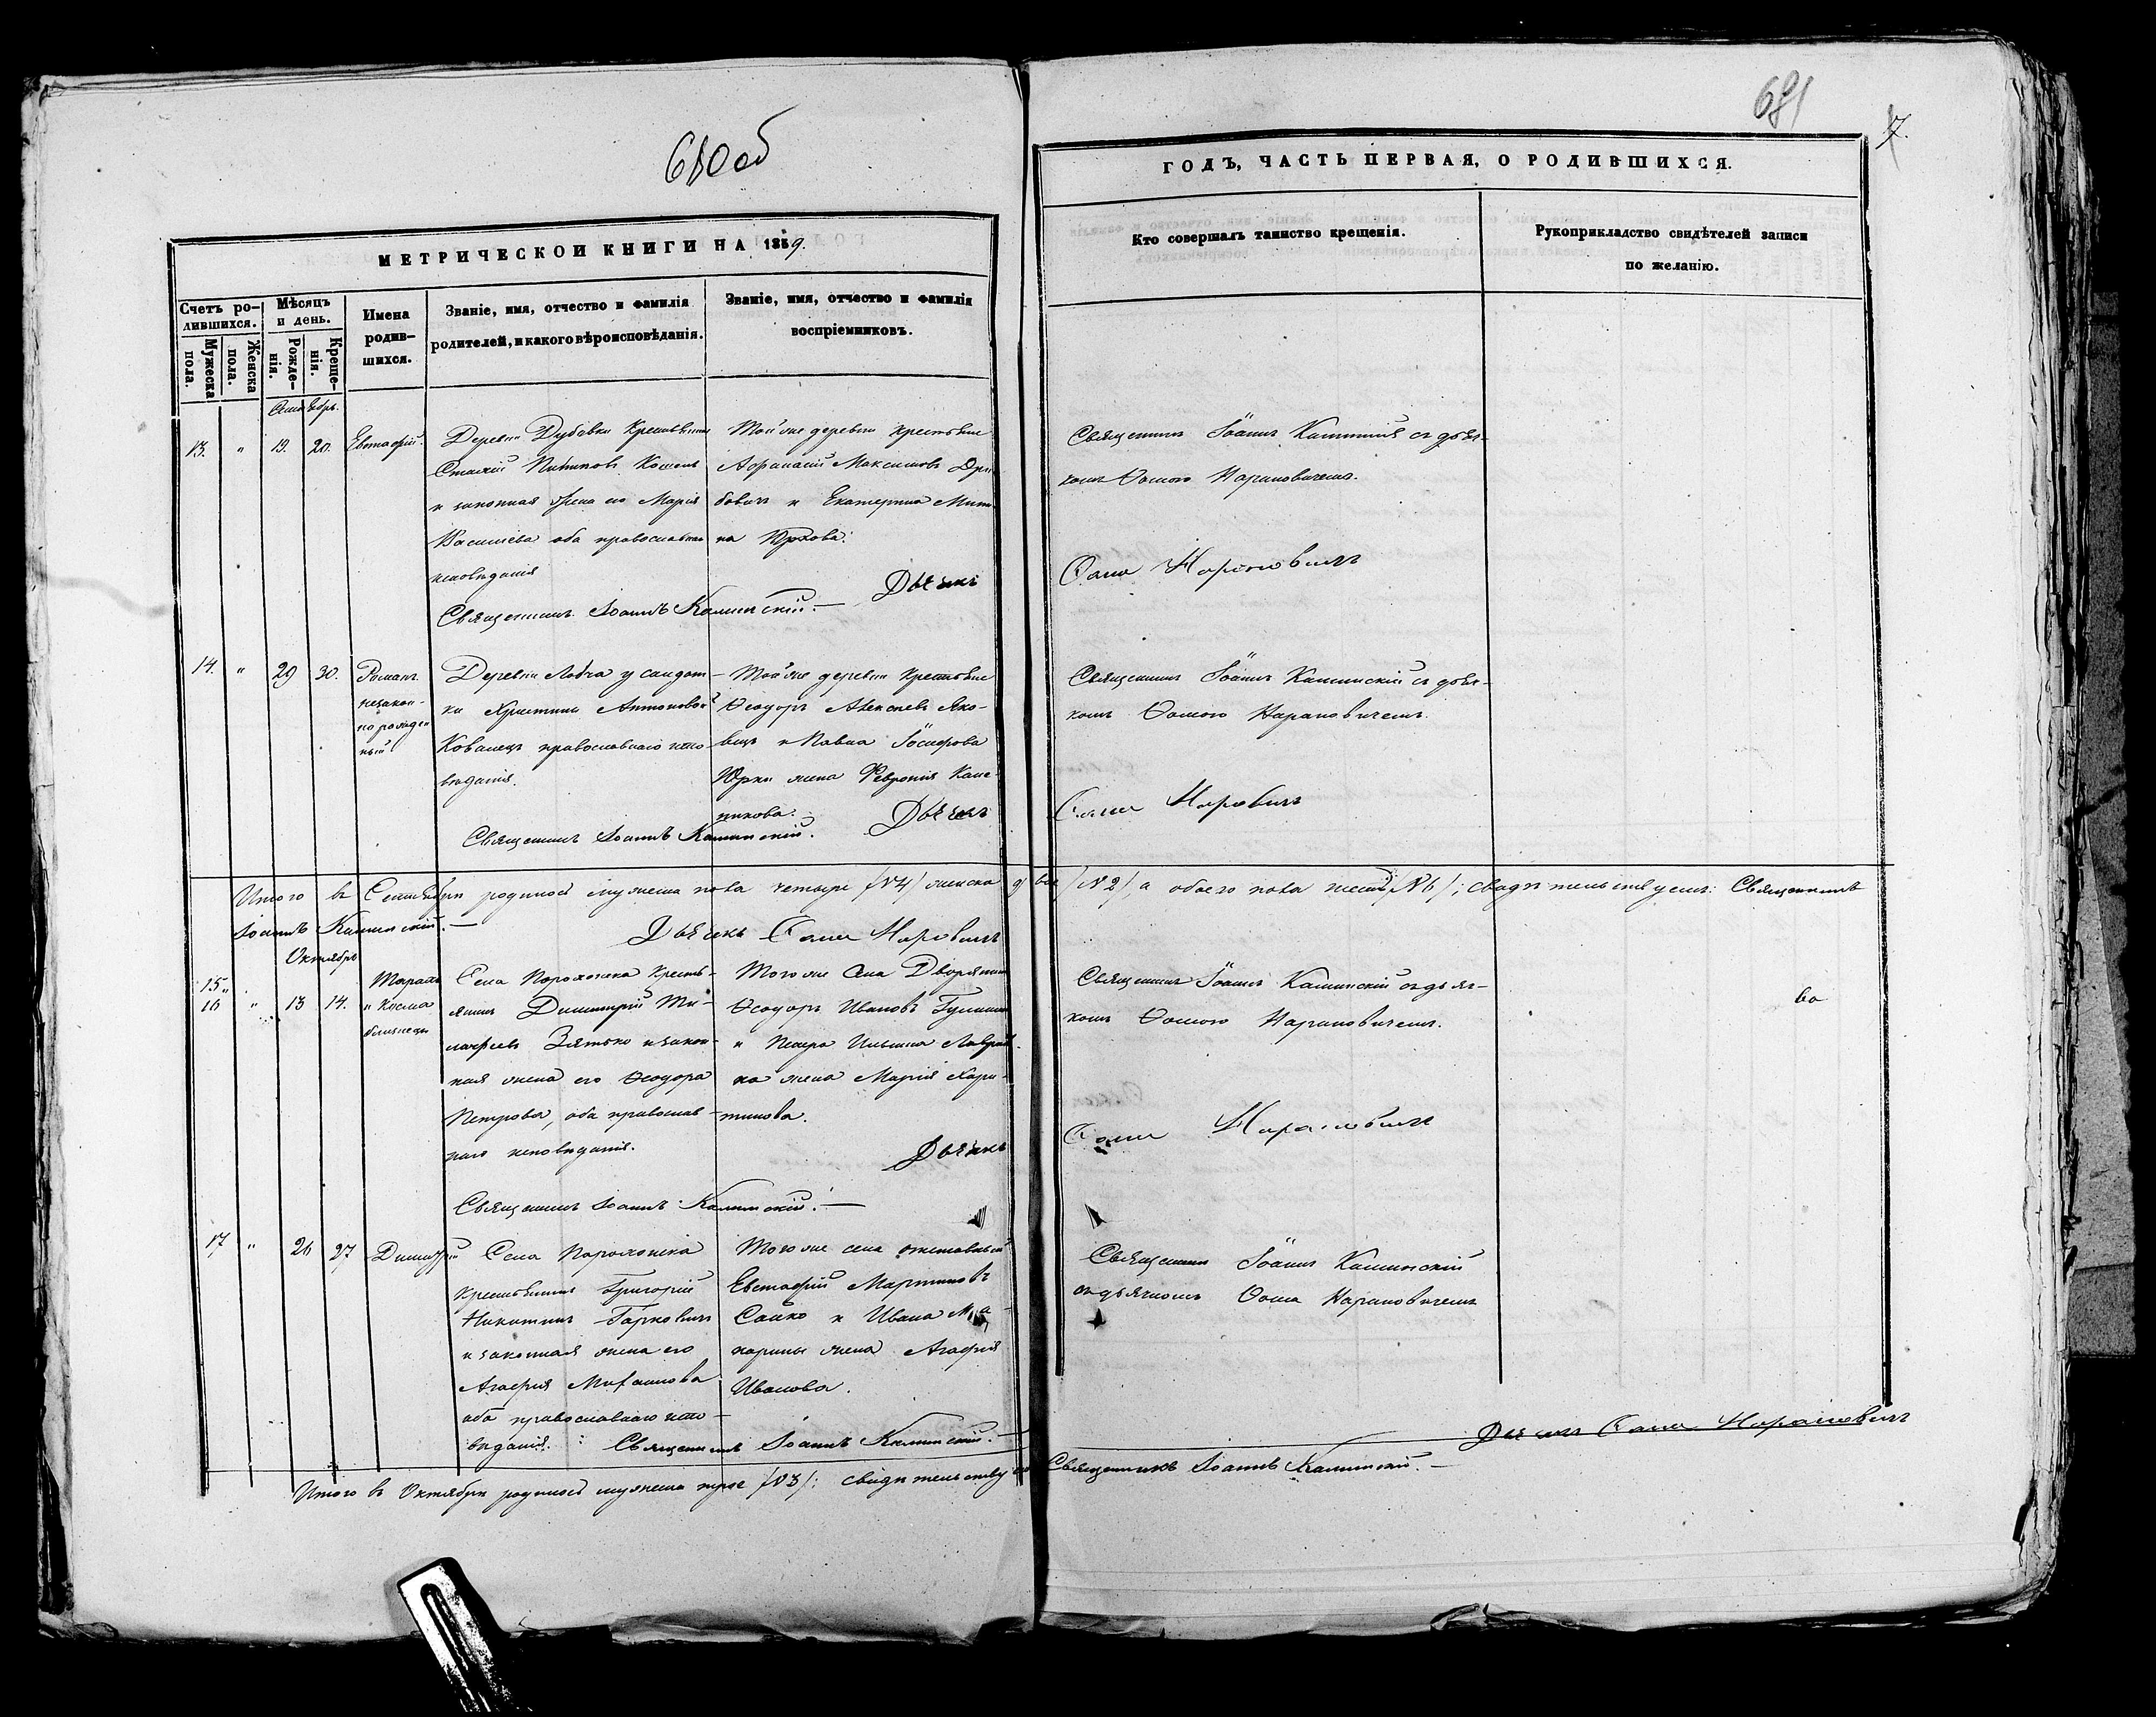 680об
681
7.
МЕТРИЧЕСКОЙ КНИГИ НА 1859.
ГОДЪ, ЧАСТЬ ПЕРВАЯ, О РОДИВШИХСЯ.
Счетъ ро-
дившихся.
Мужеска
пола.
Женска
пола.
Мѣсяцъ
и день.
Рожде-
нія.
Креще-
нія.
Имена
родив-
шихся.
Званіе, имя, отчество и фамилія
родителей, и какого вѣроисповѣданія.
Званіе, имя, отчество и фамилія
воспріемниковъ.
Кто совершалъ таинство крещенія.
Рукоприкладство свидѣтелей записи
по желанію.
Сентябрь.
13. " 19. 20. Евстафій.
Деревни Дубовки Крестьянинъ
и законная жена его Марія
Васильева оба православнаго
исповѣданія
Священникъ Іоаннъ Калинскій.—
Той же деревни крестьянинъ
Афанасій Максимовъ
и Екатерина
Дьячекъ
Священникъ Іоаннъ Калинскій съ дьяч-
комъ Ѳомою Нарановичемъ.
Ѳома Нарановичъ
14. " 29 30. Романъ
незакон-
но рожден
ный
Деревни Лобча у солдат-
ки Христины Антоновой
Ковалецъ православнаго испо-
вѣданія.
Священникъ Іоаннъ Калинскій.
Той же деревни крестьянинъ
Ѳеодоръ Алексѣевъ Яко-
вецъ и Павла Іосифова
Юрки жена Февронія
Дьячекъ
Священникъ Іоаннъ Калинскій съ дьяч-
комъ Ѳомою Нарановичемъ.
Ѳома
Итого въ Сентябрѣ родилось мужеска пола четыре /№4/ женска два /№2/, а обоего пола шесть /№6/; свидѣтельствуемъ: Священникъ
Іоаннъ Калинскій.—
Дьячекъ Ѳома
Октябрь
15 "
16 " 13 14. Тарасъ
и Косма
близнецы
Села Порохонска кресть-
янинъ Димитрій Ти-
моѳеевъ Зятько и закон-
ная жена его Ѳеодора
Петрова, оба православ-
наго исповѣданія.
Священникъ Іоаннъ Калинскій.—
Того же села Дворянинъ
Ѳеодоръ Ивановъ
и Петра Ильина
жена Марія Хари-
тонова.
Дьячекъ
Священникъ Іоаннъ Калинскій съ дьяч-
комъ Ѳомою Нарановичемъ.
Ѳома Нарановичъ
17 " 26 27 Димитрій
Села Порохонска
крестьянинъ Григорій
Никитинъ Горковичъ
и законная жена его
Агафія Михайлова
оба православнаго испо-
вѣданія. Священникъ Іоаннъ Калинскій.—
Того же села отставный
Евстафій Мартиновъ
Сайко и Ивана
жена Агафія
Иванова.
Священникъ Іоаннъ Калинскій
съ дьячкомъ Ѳома Нарановичемъ
Дьячекъ Ѳома Нарановичъ
Итого въ Октябрѣ родилось мужеска трое /№3/: свидѣтельствуемъ Священникъ Іоаннъ Калинскій.—